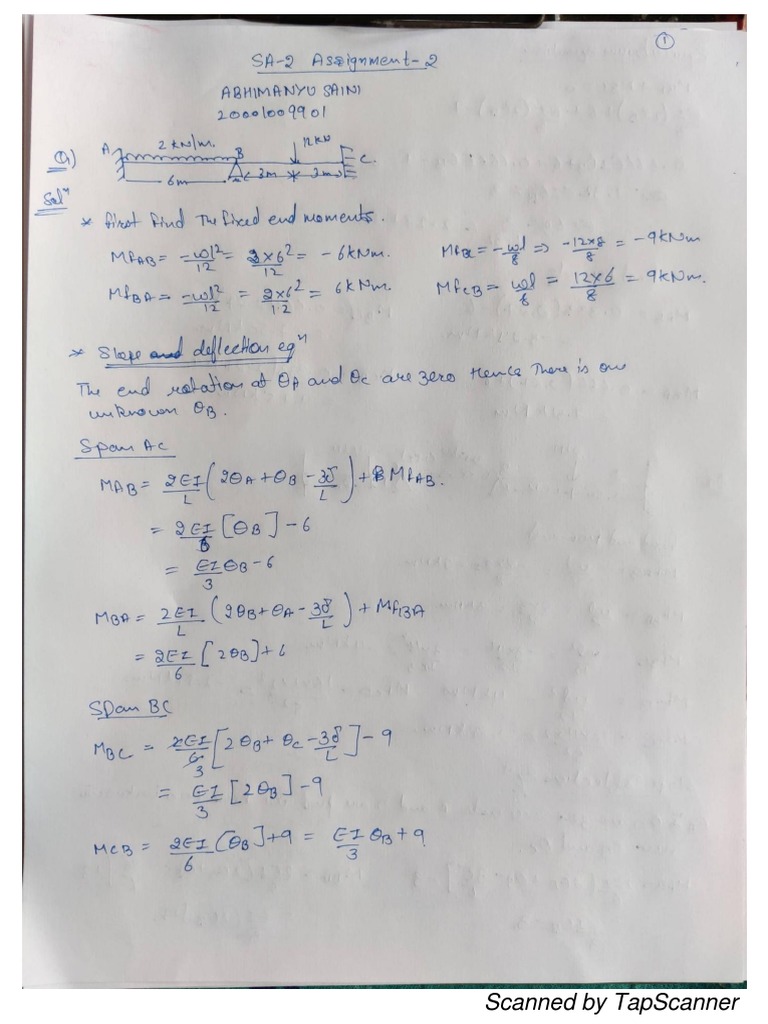 ①
SA-2 Assignment-2
ABHIMANYU SAINI
20001009901
Q1) A 2 kN/m. B 12kN C.
6m 3m 3m
Solⁿ
* first find The fixed end moments.
MfAB = -wl²/12 = 2×6²/12 = -6kNm.
MfBA = -wl²/12 = 2×6²/12 = 6kNm.
MfBC = -wl/8 => -12×8/8 = -9kNm
MfCB = wl/8 = 12×6/8 = 9kNm.
* Slope and deflection eqⁿ
The end rotation at θA and θC are zero Hence There is one
unknown θB.
Span AC
MAB = 2EI/L (2θA + θB - 3δ/L) + MfAB.
= 2EI/6 [θB] - 6
= EI/3 θB - 6
MBA = 2EI/L (2θB + θA - 3δ/L) + MfBA
= 2EI/6 [2θB] + 6
Span BC
MBC = 2EI/6 3 [2θB + θC - 3δ/L] - 9
= EI/3 [2θB] - 9
MCB = 2EI/6 [θB] + 9 = EI/3 θB + 9
Scanned by TapScanner